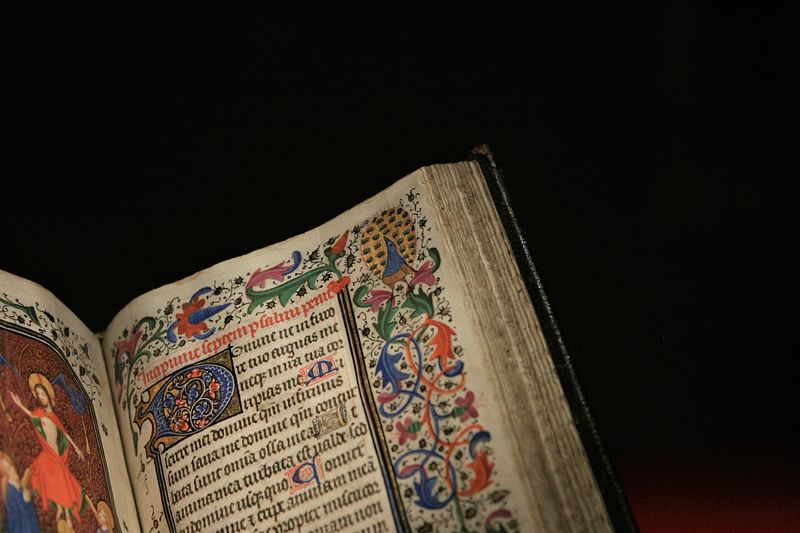 Incipiunt septem psalmi peni
Domine ne in furo
re tuo arguas me
neqz in ira tua cor
ripias me M
serere mei domine qm infirmus
sum sana me domine qm contur
bata sunt omia ossa mea Et
anima mea turbata est valde sed
domine usqz quo Conver
domine et eripe animam mea
me propter misericor
non